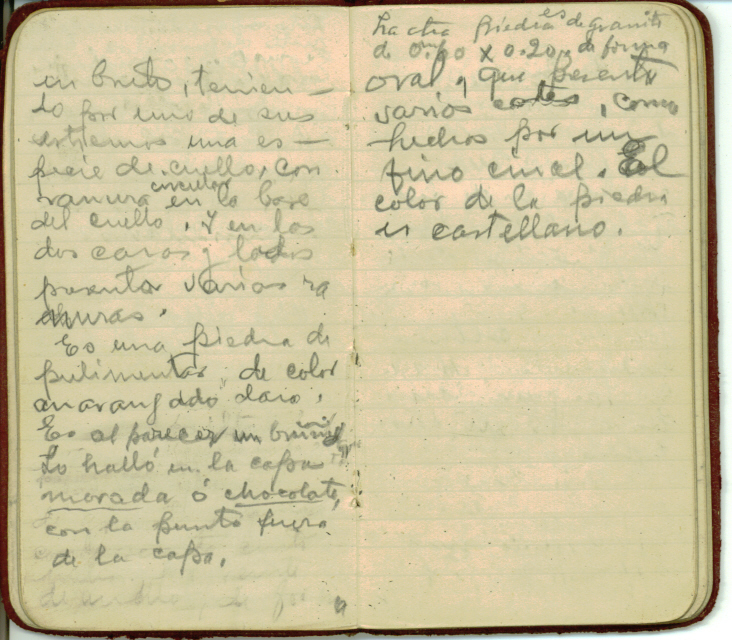 en bruto, tenien-
do por uno de sus
extremos una es-
pecie de cuello, con
ranura circular en la base
del cuello. Y en las
dos caras y lados
presenta varias ra
nuras.
Es una piedra de
pulimentar, de color
anaranjado claro.
Es al parecer un
Lo halló en la capa
morada ó chocolate,
con la punta fuera
de la capa.
La otra piedra es de granito
de 0.m60 x 0.20 de forma
oval y que presenta
varios cortes, como
hechos por un
fino cincel. El
color de la piedra
es castellano.